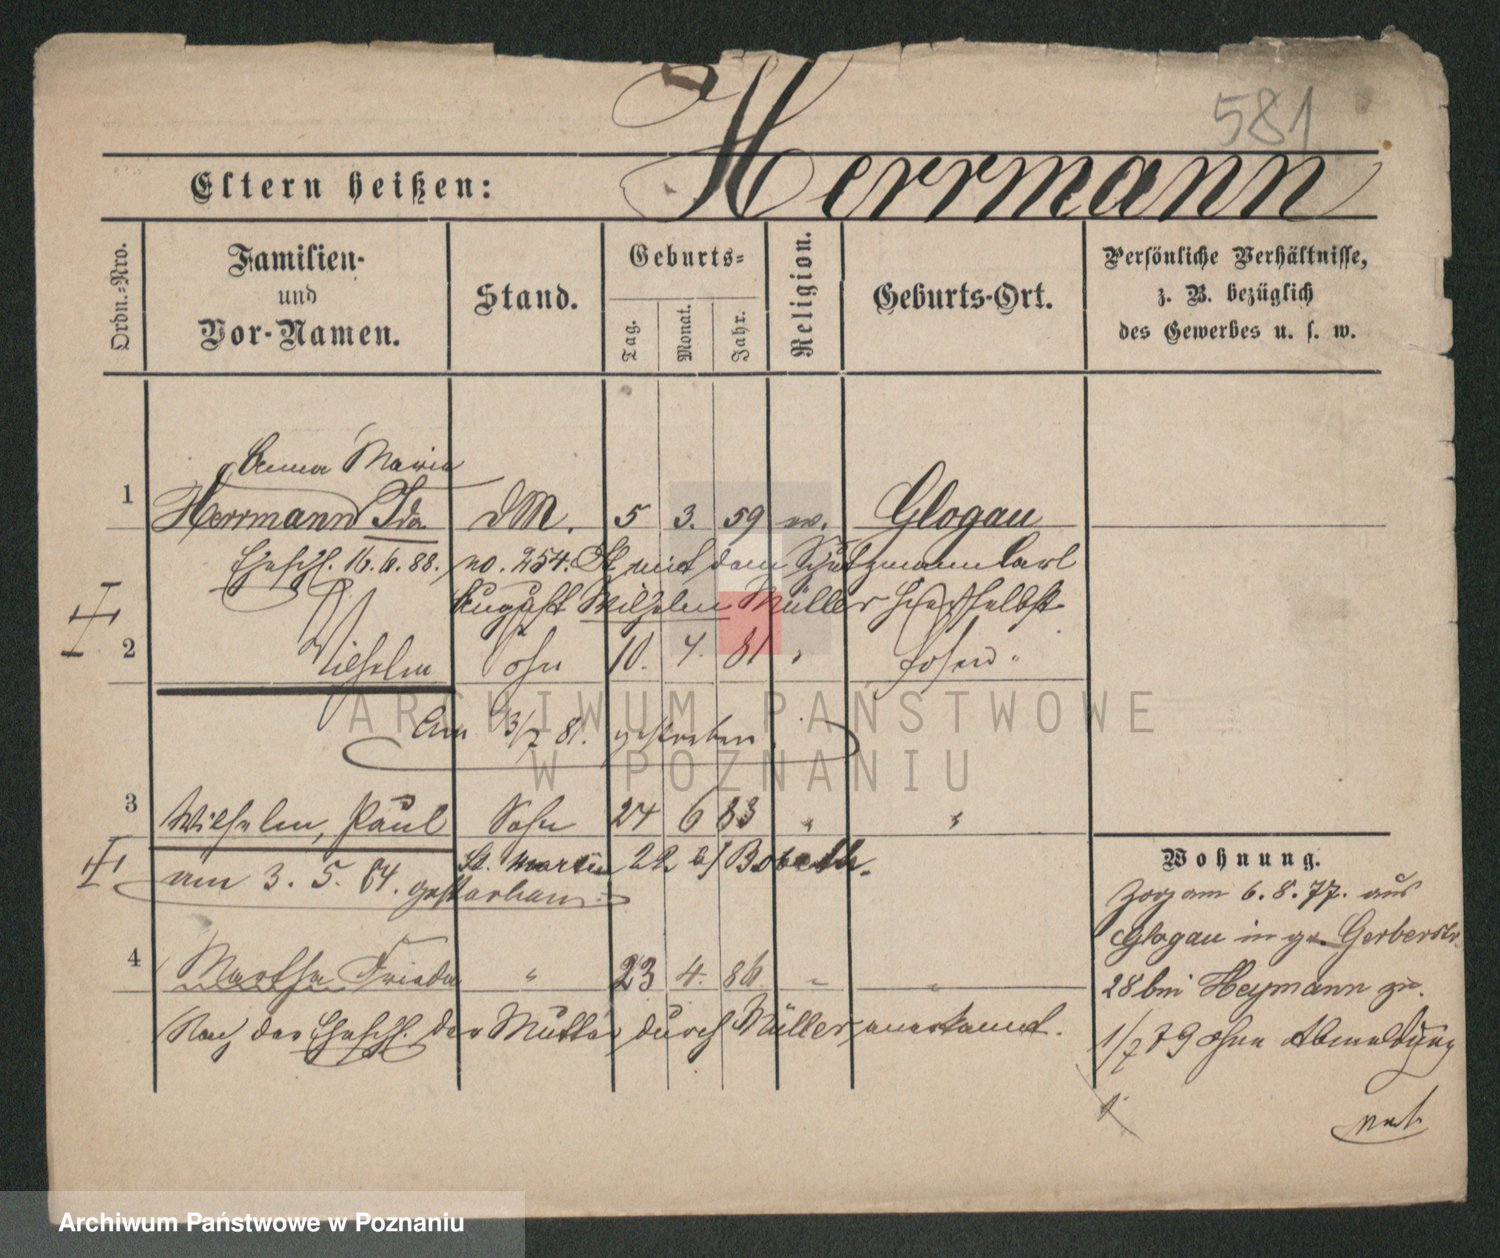 581
Eltern heißen: Herrmann
Ordn.-Nro.
Familien-
und
Vor-Namen.
Stand.
Geburts-
Tag.
Monat.
Jahr.
Religion.
Geburts-Ort.
Persönliche Verhältnisse,
z. B. bezüglich
des Gewerbes u. s. w.
Anna Maria
1 Herrmann Ida DM. 5 3. 59 ev. Glogau
Eheschl. 16. 6. 88. no. 254. mit dem Schutzmann Carl
August Wilhelm Müller hierselbst
2 Wilhelm Sohn 10. 4. 81 " Posen "
Am 13/7 81. gestorben.
3 Wilhelm, Paul Sohn 24 6 83 " "
St. Martin 22 b/ Boheth.
am 3. 5. 84. gestorben
4 Martha Frieda " 23 4. 86 " "
Nach der Eheschl. der Mutter durch Müller anerkannt.
Wohnung.
Zog am 6. 8. 77. aus
Glogau in gr. Gerberstr.
28 bei Heymann zu.
1/7 79 ohne Abmeldung
ARCHIWUM PAŃSTWOWE
W POZNANIU
Archiwum Państwowe w Poznaniu